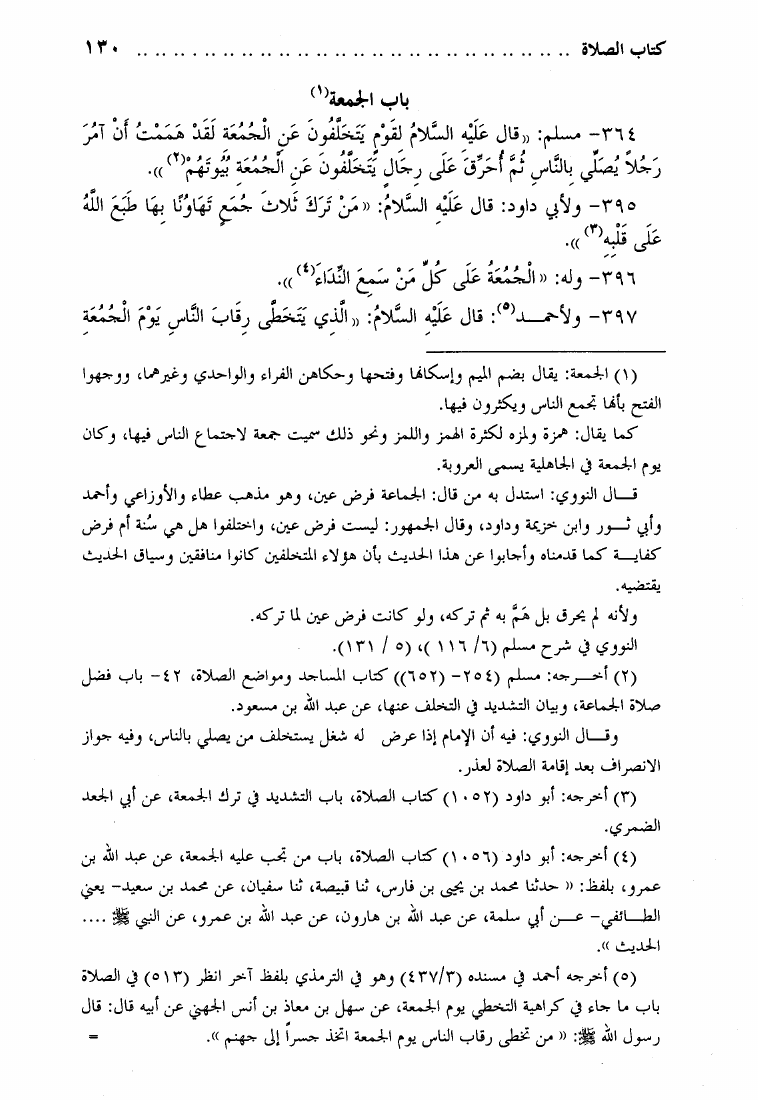 كتاب الصلاة .. .. .. .. .. .. .. .. .. .. .. .. .. .. .. .. .. .. .. .. .. .. .. .. ١٣٠
باب الجمعة(١)
٣٦٤- مسلم: «قال عَلَيْهِ السَّلامُ لقَوْمٍ يَتَخَلَّفُونَ عَنِ الْجُمُعَةِ لَقَدْ هَمَمْتُ أَنْ آمُرَ
رَجُلاً يُصَلِّي بِالنَّاسِ ثُمَّ أُحَرِّقَ عَلَى رِجَالٍ يَتَخَلَّفُونَ عَنِ الْجُمُعَةِ بُيُوتَهُمْ(٢)».
٣٩٥- ولأبي داود: قال عَلَيْهِ السَّلامُ: «مَنْ تَرَكَ ثَلاثَ جُمَعٍ تَهَاوُنًا بِهَا طَبَعَ اللَّهُ
عَلَى قَلْبِهِ(٣)».
٣٩٦- وله: «الْجُمُعَةُ عَلَى كُلِّ مَنْ سَمِعَ النِّدَاءَ(٤)».
٣٩٧- ولأحمـــد(٥): قال عَلَيْهِ السَّلامُ: «الَّذِي يَتَخَطَّى رِقَابَ النَّاسِ يَوْمَ الْجُمُعَةِ
(١) الجمعة: يقال بضم الميم وإسكانها وفتحها وحكاهن الفراء والواحدي وغيرهما، ووجهوا
الفتح بأنها تجمع الناس ويكثرون فيها.
كما يقال: همزة ولمزه لكثرة الهمز واللمز ونحو ذلك سميت جمعة لاجتماع الناس فيها، وكان
يوم الجمعة في الجاهلية يسمى العروبة.
قـــال النووي: استدل به من قال: الجماعة فرض عين، وهو مذهب عطاء والأوزاعي وأحمد
وأبي ثـــور وابن خزيمة وداود، وقال الجمهور: ليست فرض عين، واختلفوا هل هي سُنة أم فرض
كفايـــة كما قدمناه وأجابوا عن هذا الحديث بأن هؤلاء المتخلفين كانوا منافقين وسياق الحديث
يقتضيه.
ولأنه لم يحرق بل هَمَّ به ثم تركه، ولو كانت فرض عين لما تركه.
النووي في شرح مسلم (٦/ ١١٦ )، (٥ / ١٣١).
(٢) أخـــرجه: مسلم (٢٥٤- (٦٥٢)) كتاب المساجد ومواضع الصلاة، ٤٢- باب فضل
صلاة الجماعة، وبيان التشديد في التخلف عنها، عن عبد الله بن مسعود.
وقـــال النووي: فيه أن الإمام إذا عرض له شغل يستخلف من يصلي بالناس، وفيه جواز
الانصراف بعد إقامة الصلاة لعذر.
(٣) أخرجه: أبو داود (١٠٥٢) كتاب الصلاة، باب التشديد في ترك الجمعة، عن أبي الجعد
الضمري.
(٤) أخرجه: أبو داود (١٠٥٦) كتاب الصلاة، باب من تجب عليه الجمعة، عن عبد الله بن
عمرو، بلفظ: « حدثنا محمد بن يحيى بن فارس، ثنا قبيصة، ثنا سفيان، عن محمد بن سعيد- يعني
الطـــائفي- عـــن أبي سلمة، عن عبد الله بن هارون، عن عبد الله بن عمرو، عن النبي ﷺ ....
الحديث ».
(٥) أخرجه أحمد في مسنده (٤٣٧/٣) وهو في الترمذي بلفظ آخر انظر (٥١٣) في الصلاة
باب ما جاء في كراهية التخطي يوم الجمعة، عن سهل بن معاذ بن أنس الجهني عن أبيه قال: قال
رسول الله ﷺ: « من تخطى رقاب الناس يوم الجمعة اتخذ جسراً إلى جهنم ». =